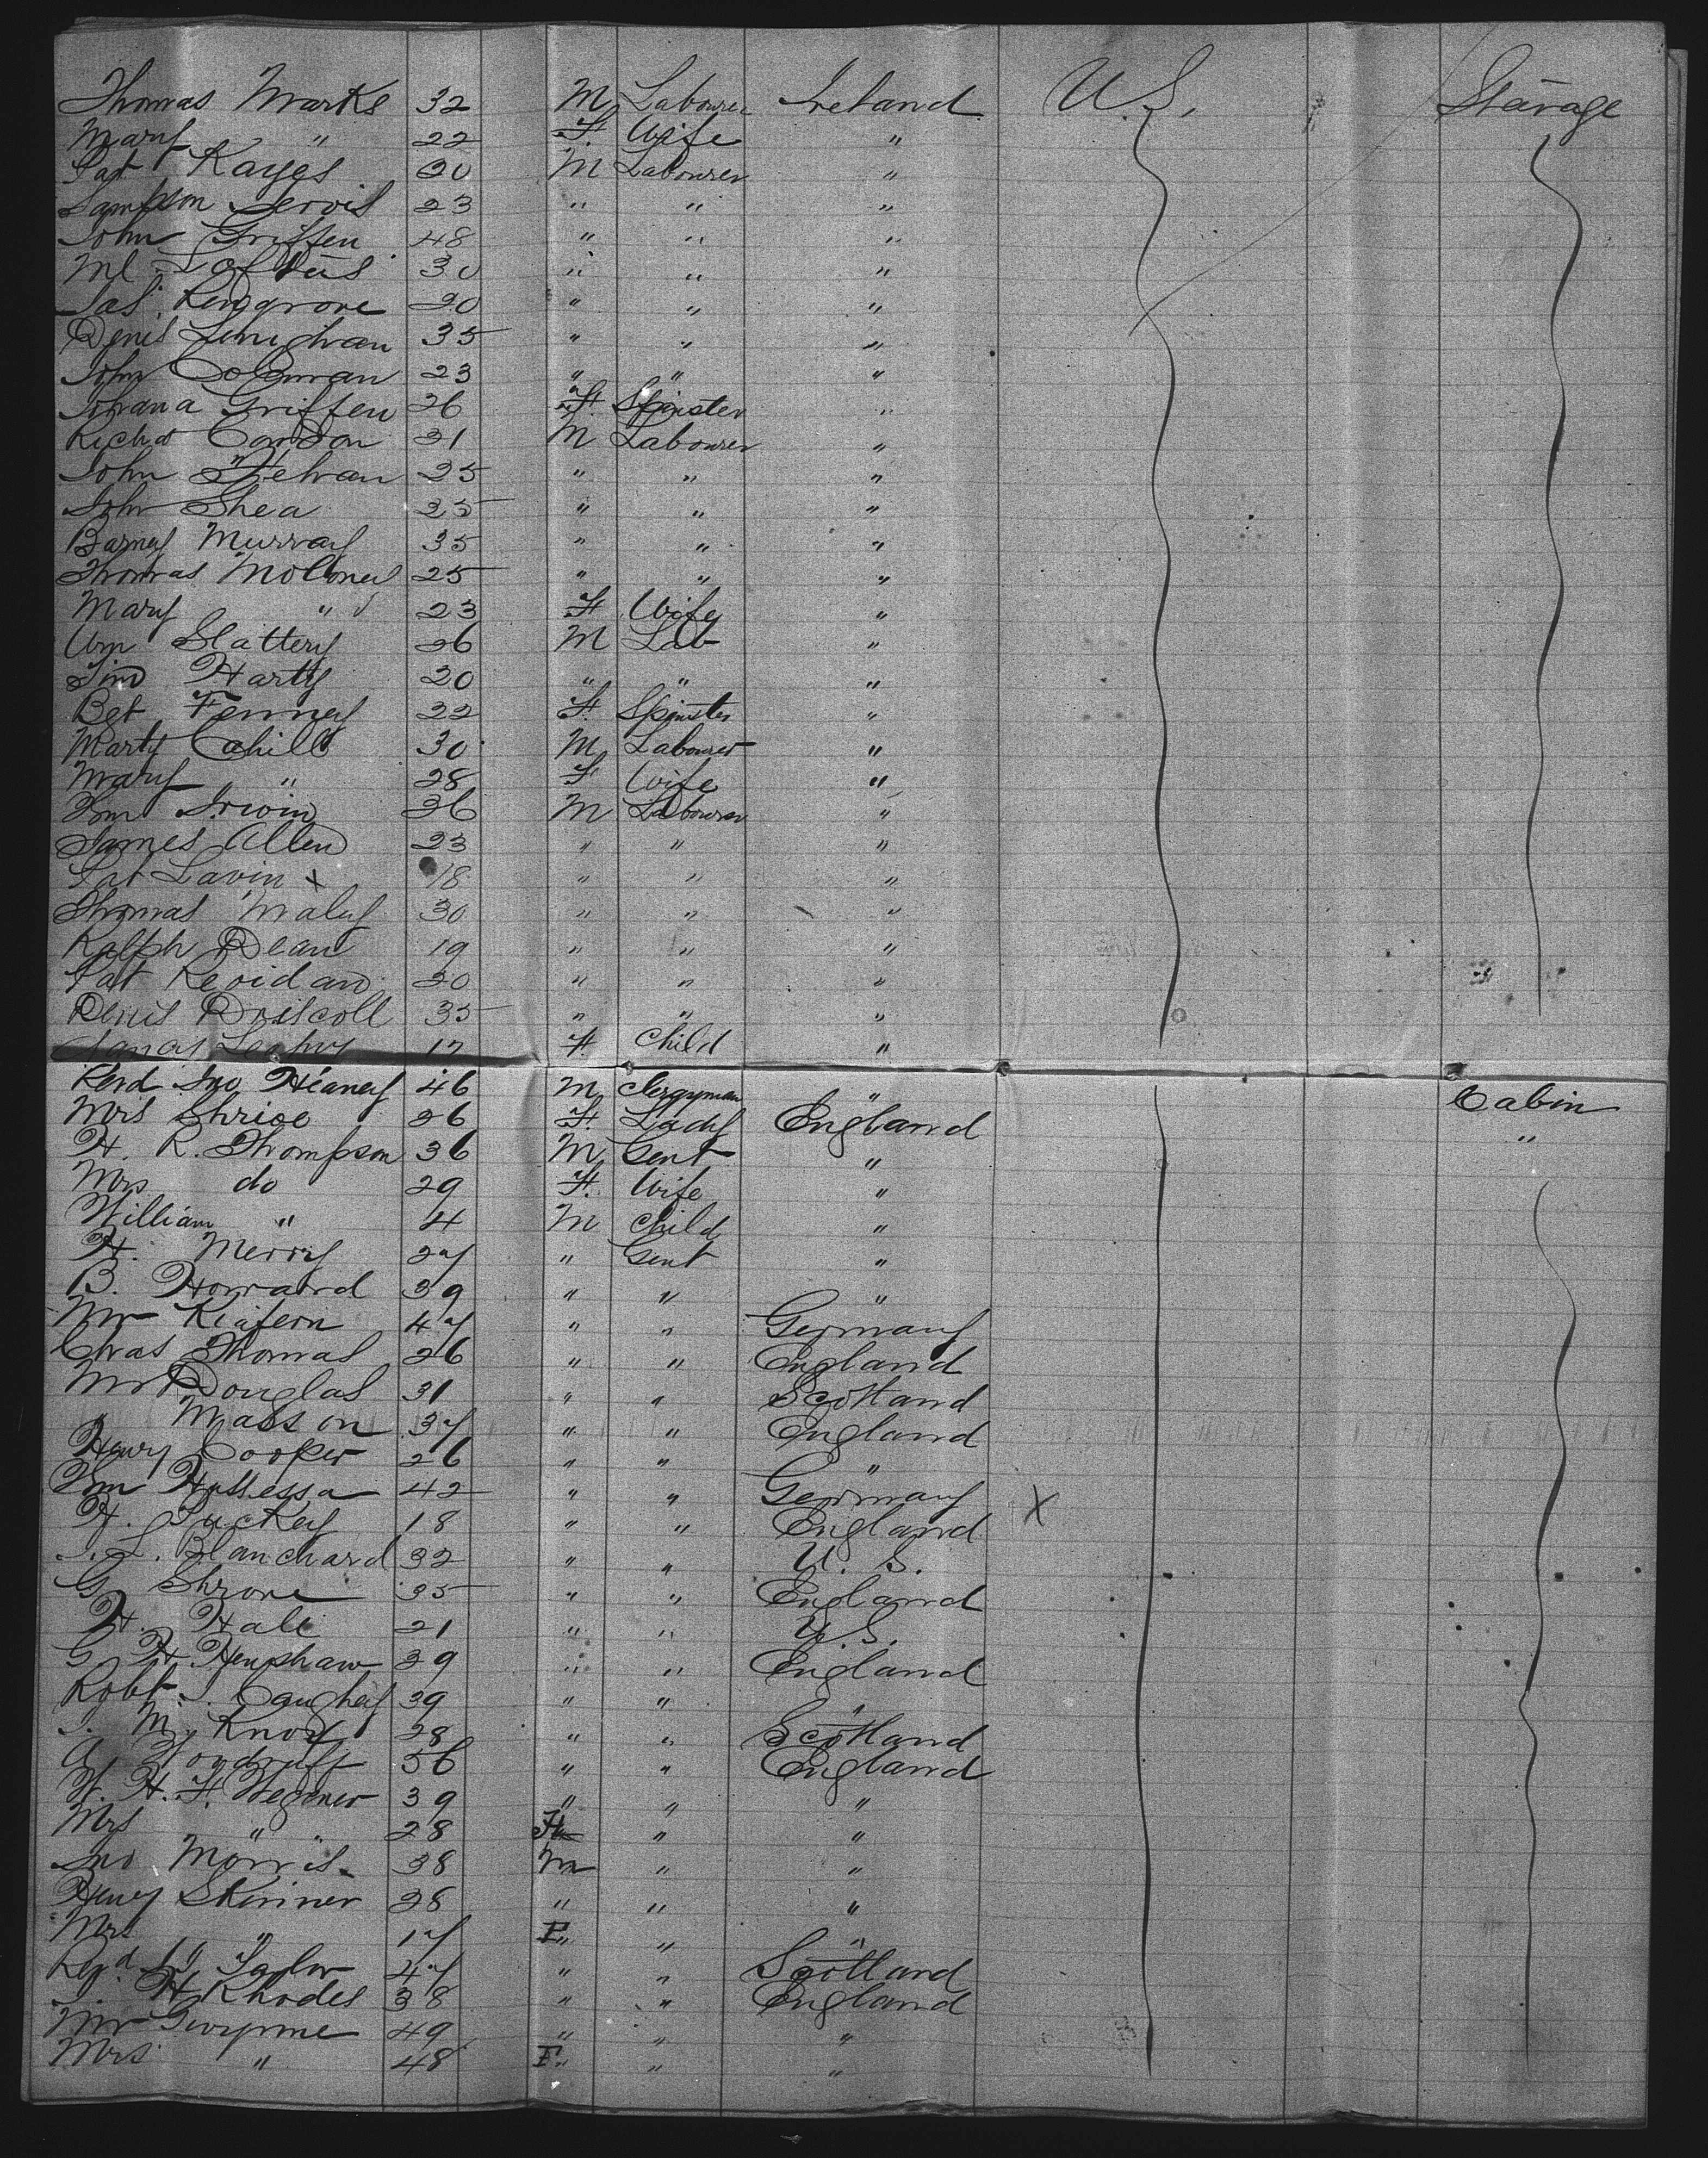 Thomas Marks 32 M Labourer Ireland U S. Stearage
Mary " 22 F. Wife "
Pat Kayes 20 M Labourer "
Sampson Jervis 23 " " "
John Griffen 48 " " "
Ml Loftus 30 " " "
Jas. 20 " " "
Denis 35 " " "
John Coleman 23 " " "
Johana Griffen 26 F. Spinster "
Richd Condon 21 M Labourer "
John 25 " " "
John Shea 25 " " "
Barney Murray 35 " " "
Thomas Moloney 25 " " "
Mary " 23 F Wife "
Wm Slattery 26 M Lab "
Jim Harty 20 " " "
Bgt Fenney 22 F. Spinster "
Marty Cahill 30 M Labourer "
Mary " 28 F Wife "
Wm Irwin 36 M Labourer "
James Allen 23 " " "
Pat Lavin x 18 " " "
Thomas Maly 30 " " "
Ralph Dean 19 " " "
Pat 20 " " "
Denis Driscoll 35 " " "
17 F. Child "
Revd Jno Heaney 46 M Clergyman " Cabin
Mrs 26 F. Lady England "
H. R. Thompson 36 M Gent "
Mrs do 29 F. Wife "
William " 4 M Child "
H. Merry 27 " Gent "
B. Howard 39 " " "
Mr 47 " " Germany
Chas Thomas 26 " " England
Mr Douglas 31 " " Scotland
" Masson 37 " " England
Henry Cooper 26 " " "
Wm 42 " " Germany
H. Tuckey 18 " " England X
Blanchard 32 " " U. S.
G. 35 " " England
H. Hall 21 " " U. S.
G. H. Henshaw 39 " " England
Robt. J. Caughey 39 " " "
J. M. Knox 28 " " Scotland
A. Woodruff 56 " " England
W. H. F. Wegener 39 " " "
Mrs " 28 F " "
Jno Morris 38 M " "
Henry Skinner 28 " " "
Mrs " 17 F " "
Revd Taylor 47 " " Scotland
H Rhodes 38 " " England
Mr Gwynne 49 " " "
Mrs " 48 F " "